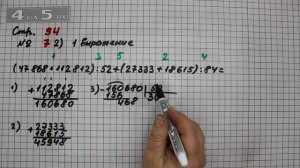 4BY5.RU
Стр. 94
№ 72) 1 Выражение
1 3 5 2 4
(47868+112812):52+(27333+18615):84=
1) +112812
47868
160680
3) -160680|52
156 |30
468
2) +27333
18615
45948